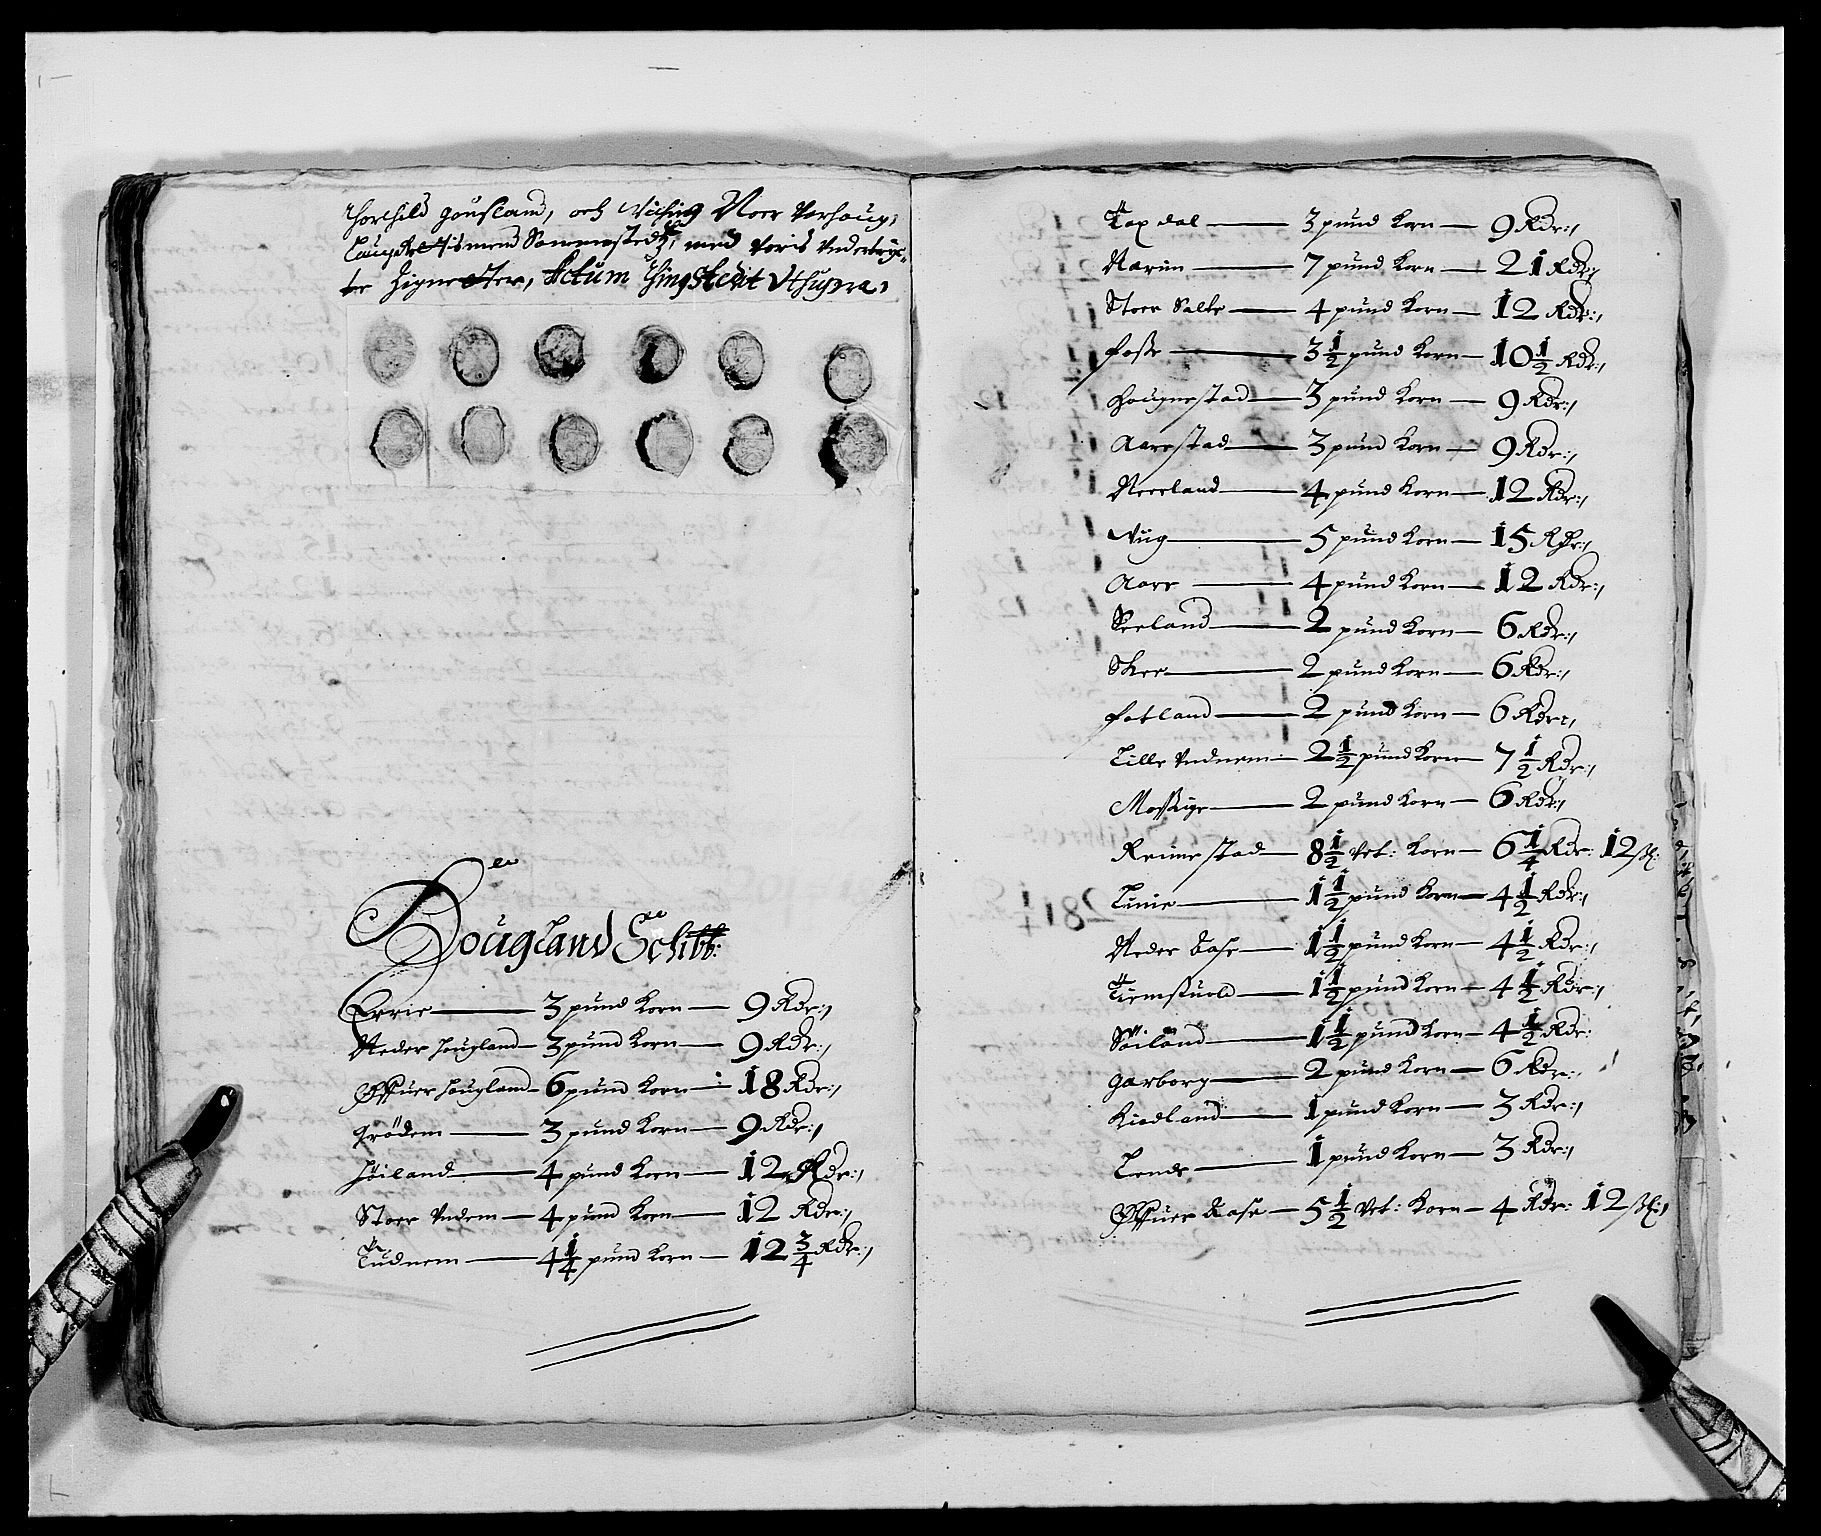 Thorkild gousland, och Viching Noer Varhoug,
Laugrettismend Sammestedz, med voris vnderteigne-
te Zigneeter, Actum Tingstedit Vt supra,
Hougland Schibb:
Errie — 3 pund Korn — 9 Rdr:,
Neder hougland — 3 pund Korn — 9 Rdr:,
Øffuer hougland — 6 pund Korn — 18 Rdr:,
grödem — 3 pund Korn — 9 Rdr:,
höiland — 4 pund Korn — 12 Rdr:,
Stoer Vndem — 4 pund Korn — 12 Rdr:,
Tudnem — 4 1/4 pund Korn — 12 3/4 Rdr:,
Taxdal — 3 pund Korn — 9 Rdr:,
Narim — 7 pund Korn — 21 Rdr:,
Stoer Salte — 4 pund Korn — 12 Rdr:,
fosse — 3 1/2 pund Korn — 10 1/2 Rdr:,
Hougnestad — 3 pund Korn — 9 Rdr:,
Aarestad — 3 pund Korn — 9 Rdr:,
Neerland — 4 pund Korn — 12 Rdr:,
Viig — 5 pund Korn — 15 Rdr:,
Aarr — 4 pund Korn — 12 Rdr:,
Seeland — 2 pund Korn — 6 Rdr:,
Skee — 2 pund Korn — 6 Rdr:,
fotland — 2 pund Korn — 6 Rdr:,
Lille Vndnem — 2 1/2 pund Korn — 7 1/2 Rdr:,
Mossige — 2 pund Korn — 6 Rdr:,
Reimestad — 8 1/2 Vet: Korn — 6 1/4 Rdr: 12 ß:
Lunie — 1 1/2 pund Korn — 4 1/2 Rdr:,
Neder Aase — 1 1/2 pund Korn — 4 1/2 Rdr:,
Tiemsuold — 1 1/2 pund Korn — 4 1/2 Rdr:,
Söiland — 1 1/2 pund Korn — 4 1/2 Rdr:
garborg — 2 pund Korn — 6 Rdr:,
Kiedland — 1 pund Korn — 3 Rdr:,
Lende — 1 pund Korn — 3 Rdr:,
Øffuer Aase — 5 1/2 Vet: Korn — 4 Rdr: 12 ß:,